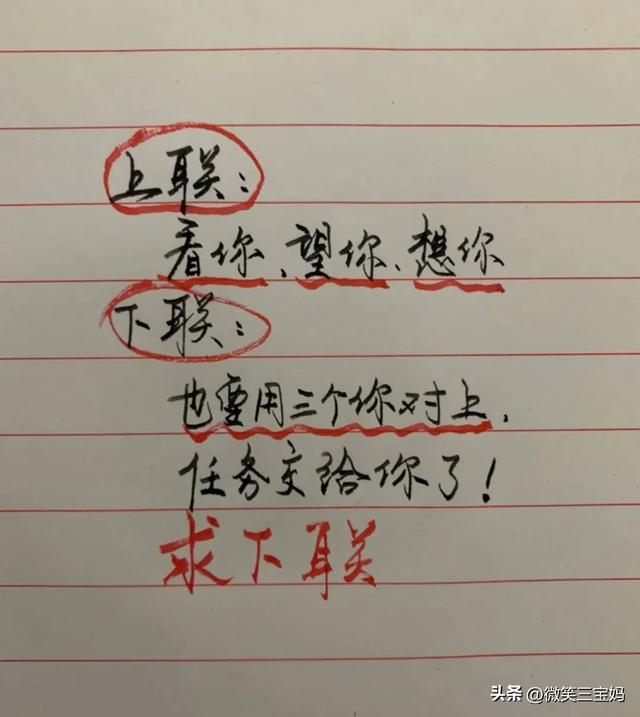 上联：
看你、望你、想你
下联：
也要用三个你对上，
任务交给你了！
求下联
头条 @微笑三宝妈